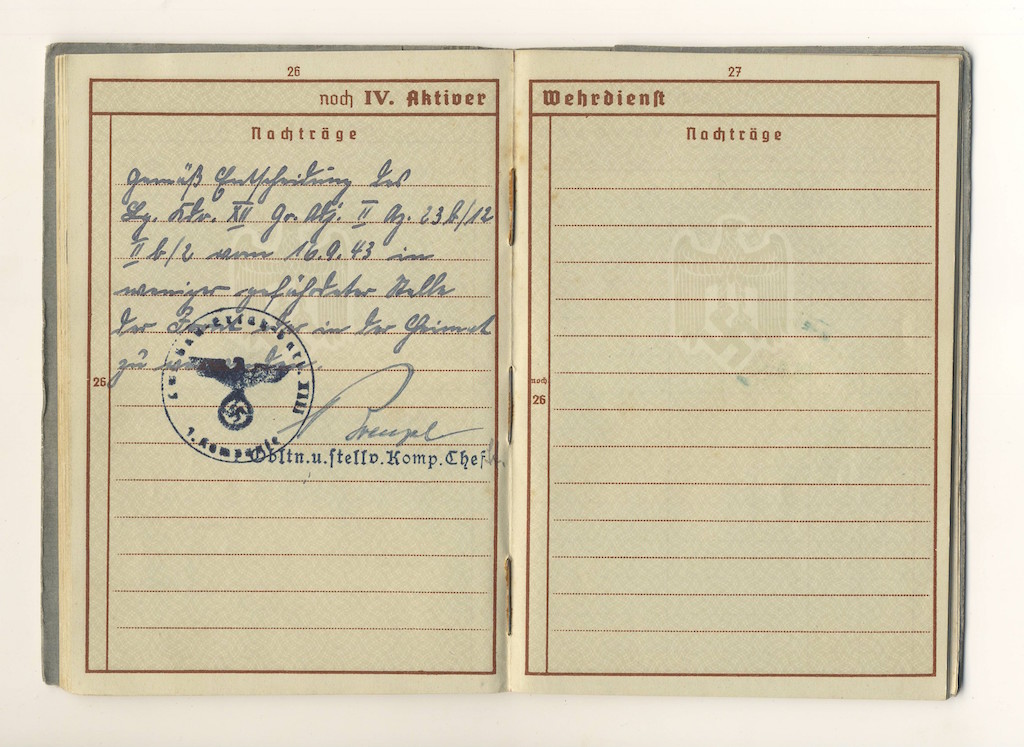 26
noch IV. Aktiver
Nachträge
gemäß Entscheidung des
Lg. Kdo. XII Gr. Abj. II Az. 23b/12
II b/2 vom 16.9.43 in
weniger gefährdeter Stelle
der Front oder in der Heimat
zu
26
1. Kompanie
Obltn.u.stellv.Komp.Chef
27
Wehrdienst
Nachträge
noch
26